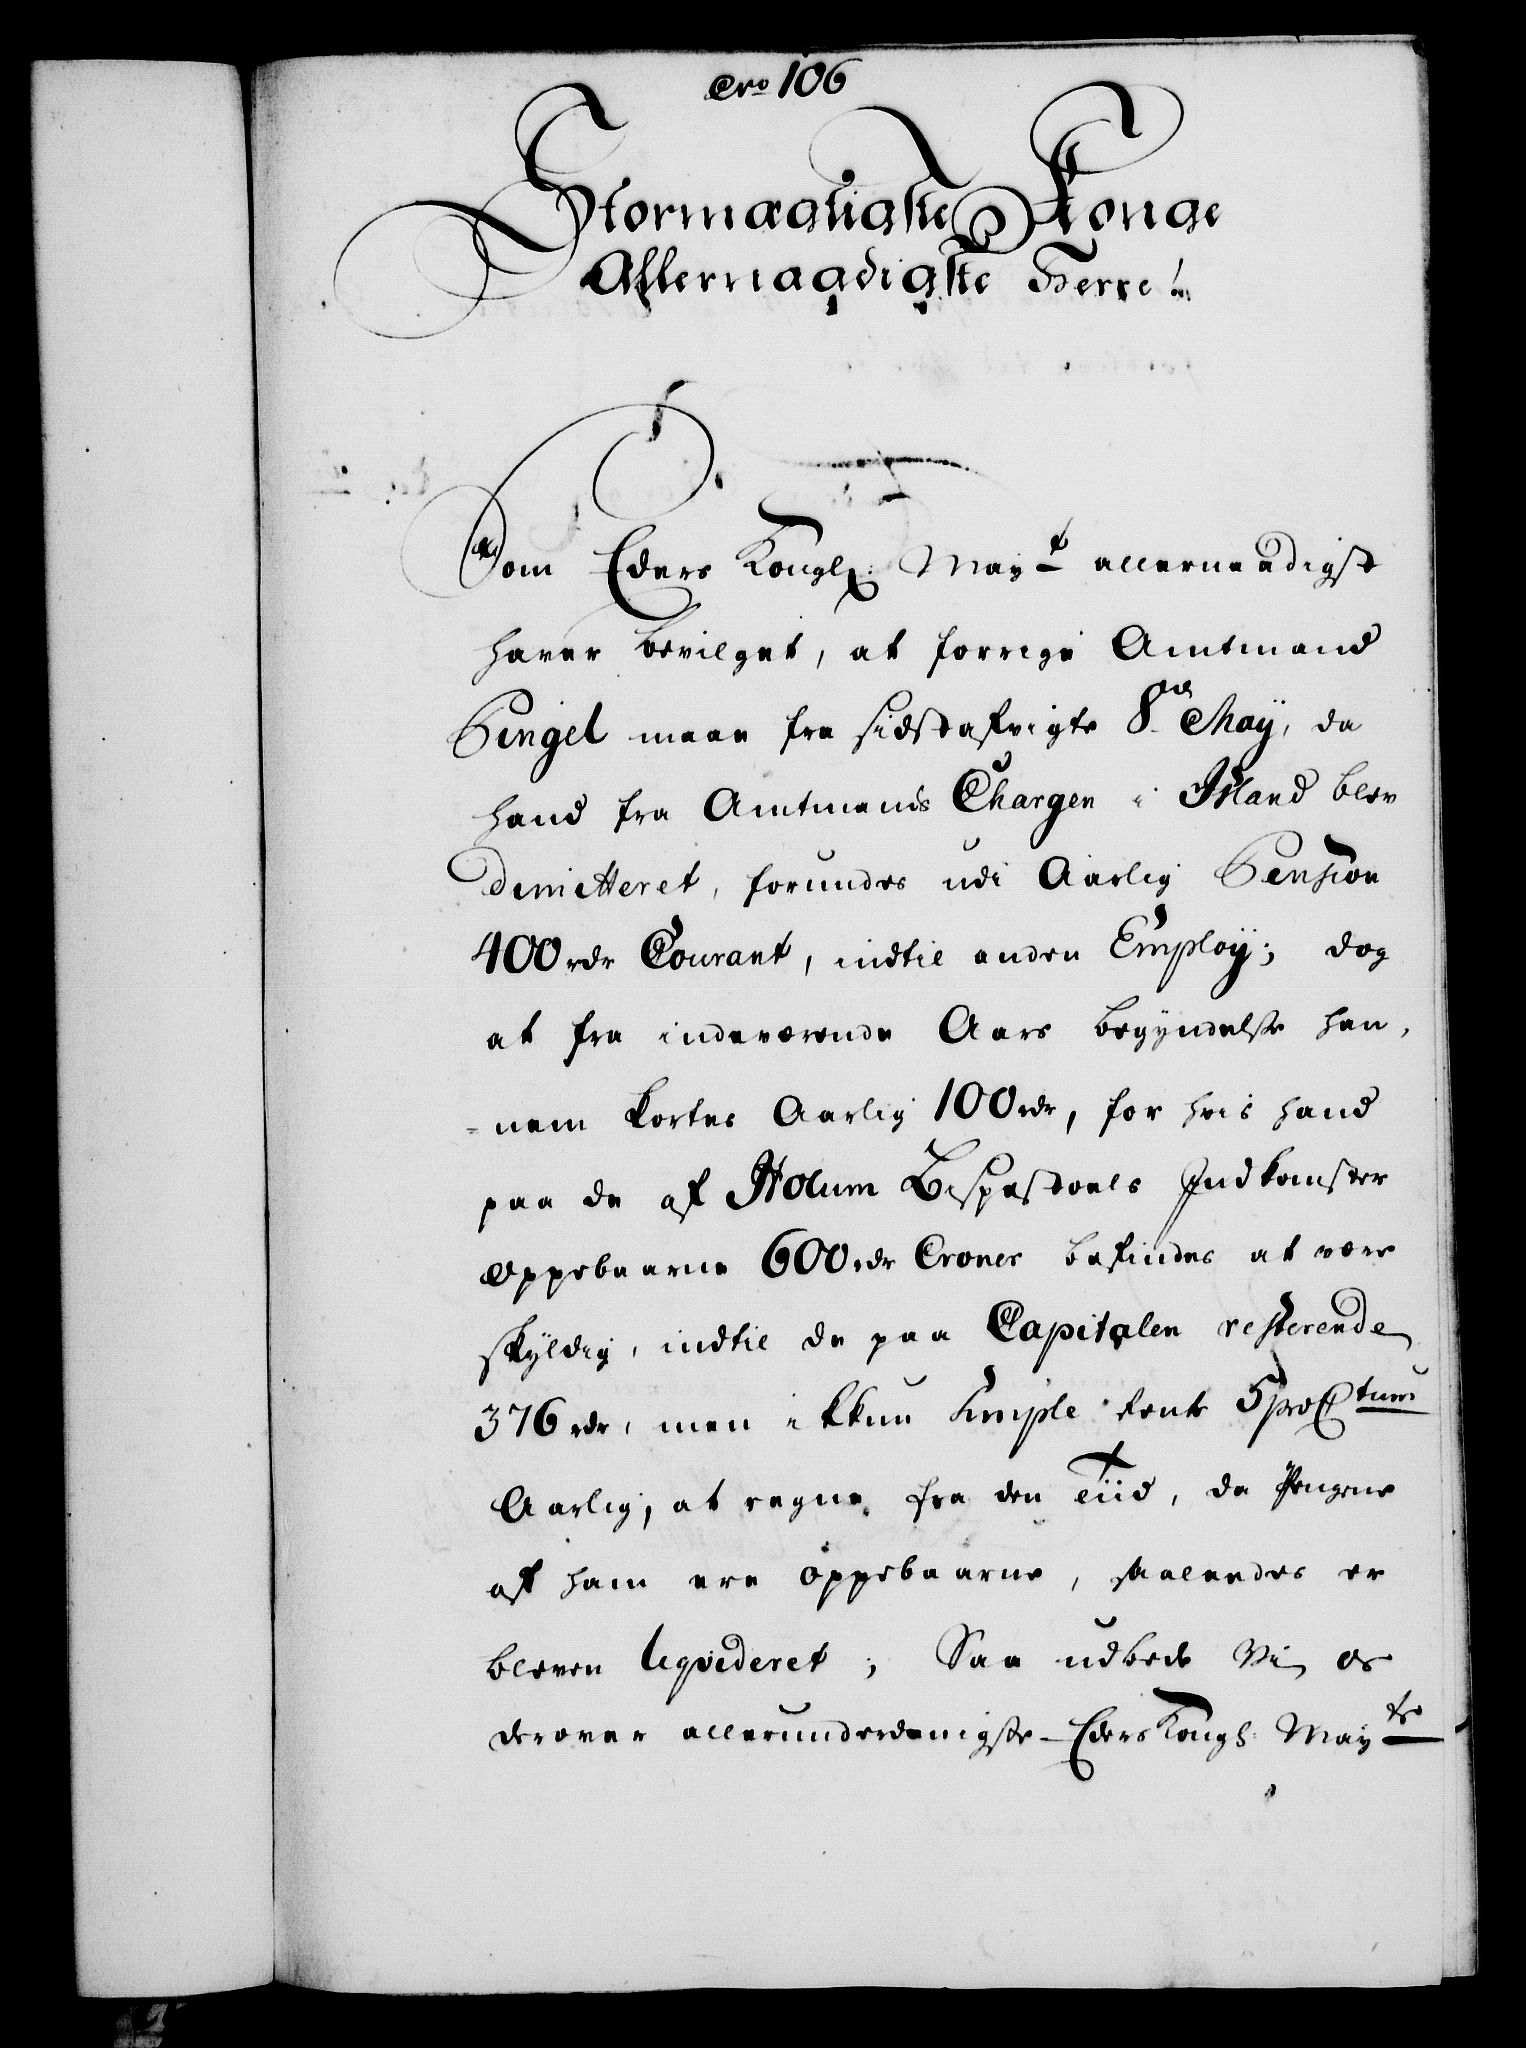 Nro 106
Stormægtigste Konge
Allernaadigste Herre!
Som Eders Kongl: Mayt allernaadigst
haver bevilget, at forrige Amtmand
Pingel maae fra sidstafvigte 8de May, da
hand fra Amtmands Chargen i Island blev
dimitteret, forundes udi Aarlig Pension
400 rdr Courant, indtil anden Employ; dog
at fra indeværende Aars begyndelse han,
=nem kortes Aarlig 100 rdr, for hvis hand
paa de af Holum Bispestoels Indkomster
oppebaarne 600 rdr Croner befindes at være
skyldig, indtil de paa Capitalen resterende
376 rdr, men ikkun simple Rente 5 pro Ctum
Aarlig, at regne fra den Tiid, da Pengene
af ham ere oppebaarne, saaledes er
bleven liqvideret; Saa udbede Vi os
derover allerunderdanigste Eders Kongl: Mayts